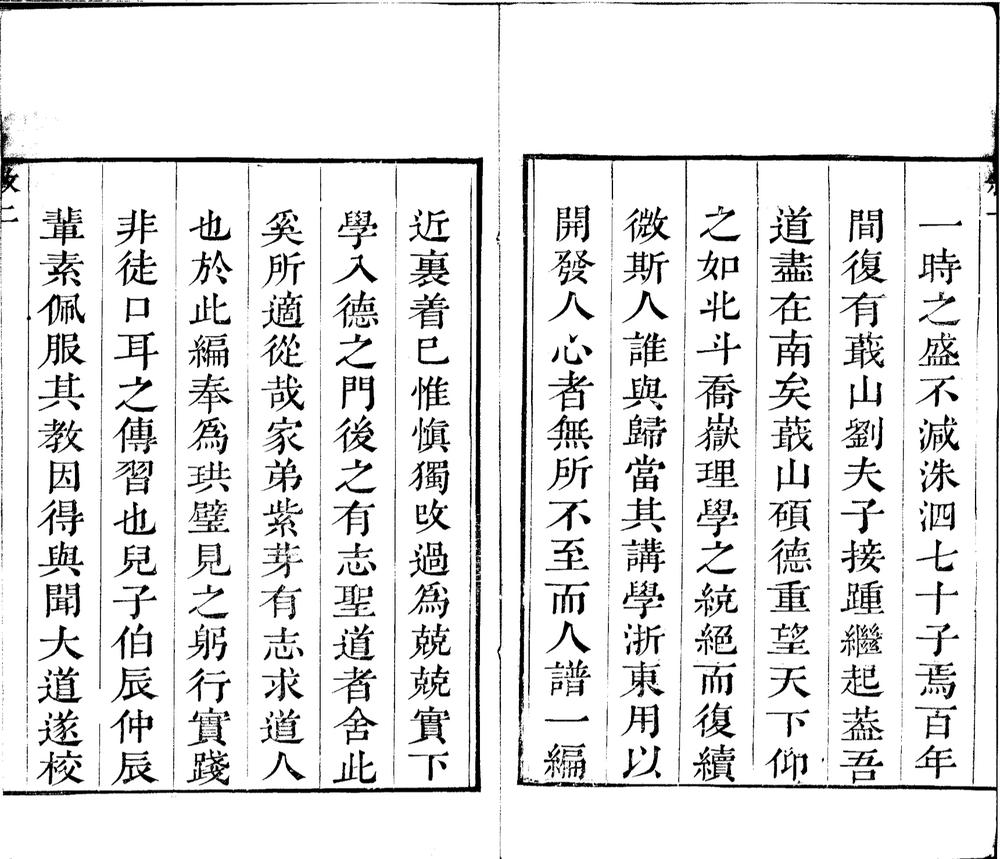 一時之盛不減洙泗七十子焉百年
間復有蕺山劉夫子接踵繼起葢吾
道盡在南矣蕺山碩德重望天下仰
之如北斗喬嶽理學之統絕而復續
微斯人誰與歸當其講學浙東用以
開發人心者無所不至而人譜一編
近裏着已惟愼獨改過爲兢兢實下
學入德之門後之有志聖道者舍此
奚所適從哉家弟紫芽有志求道人
也於此編奉爲珙璧見之躬行實踐
非徒口耳之傳習也兒子伯辰仲辰
輩素佩服其教因得與聞大道遂校
二